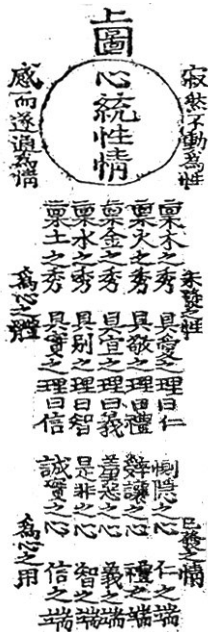 上圖
寂然不動為性
心統性情
感而遂通為情
未發之性
稟木之秀 具愛之理曰仁
稟火之秀 具敬之理曰禮
稟金之秀 具宜之理曰義
稟水之秀 具別之理曰智
稟土之秀 具實之理曰信
為心之體
已發之情
惻隱之心 仁之端
辭讓之心 禮之端
羞惡之心 義之端
是非之心 智之端
誠實之心 信之端
為心之用